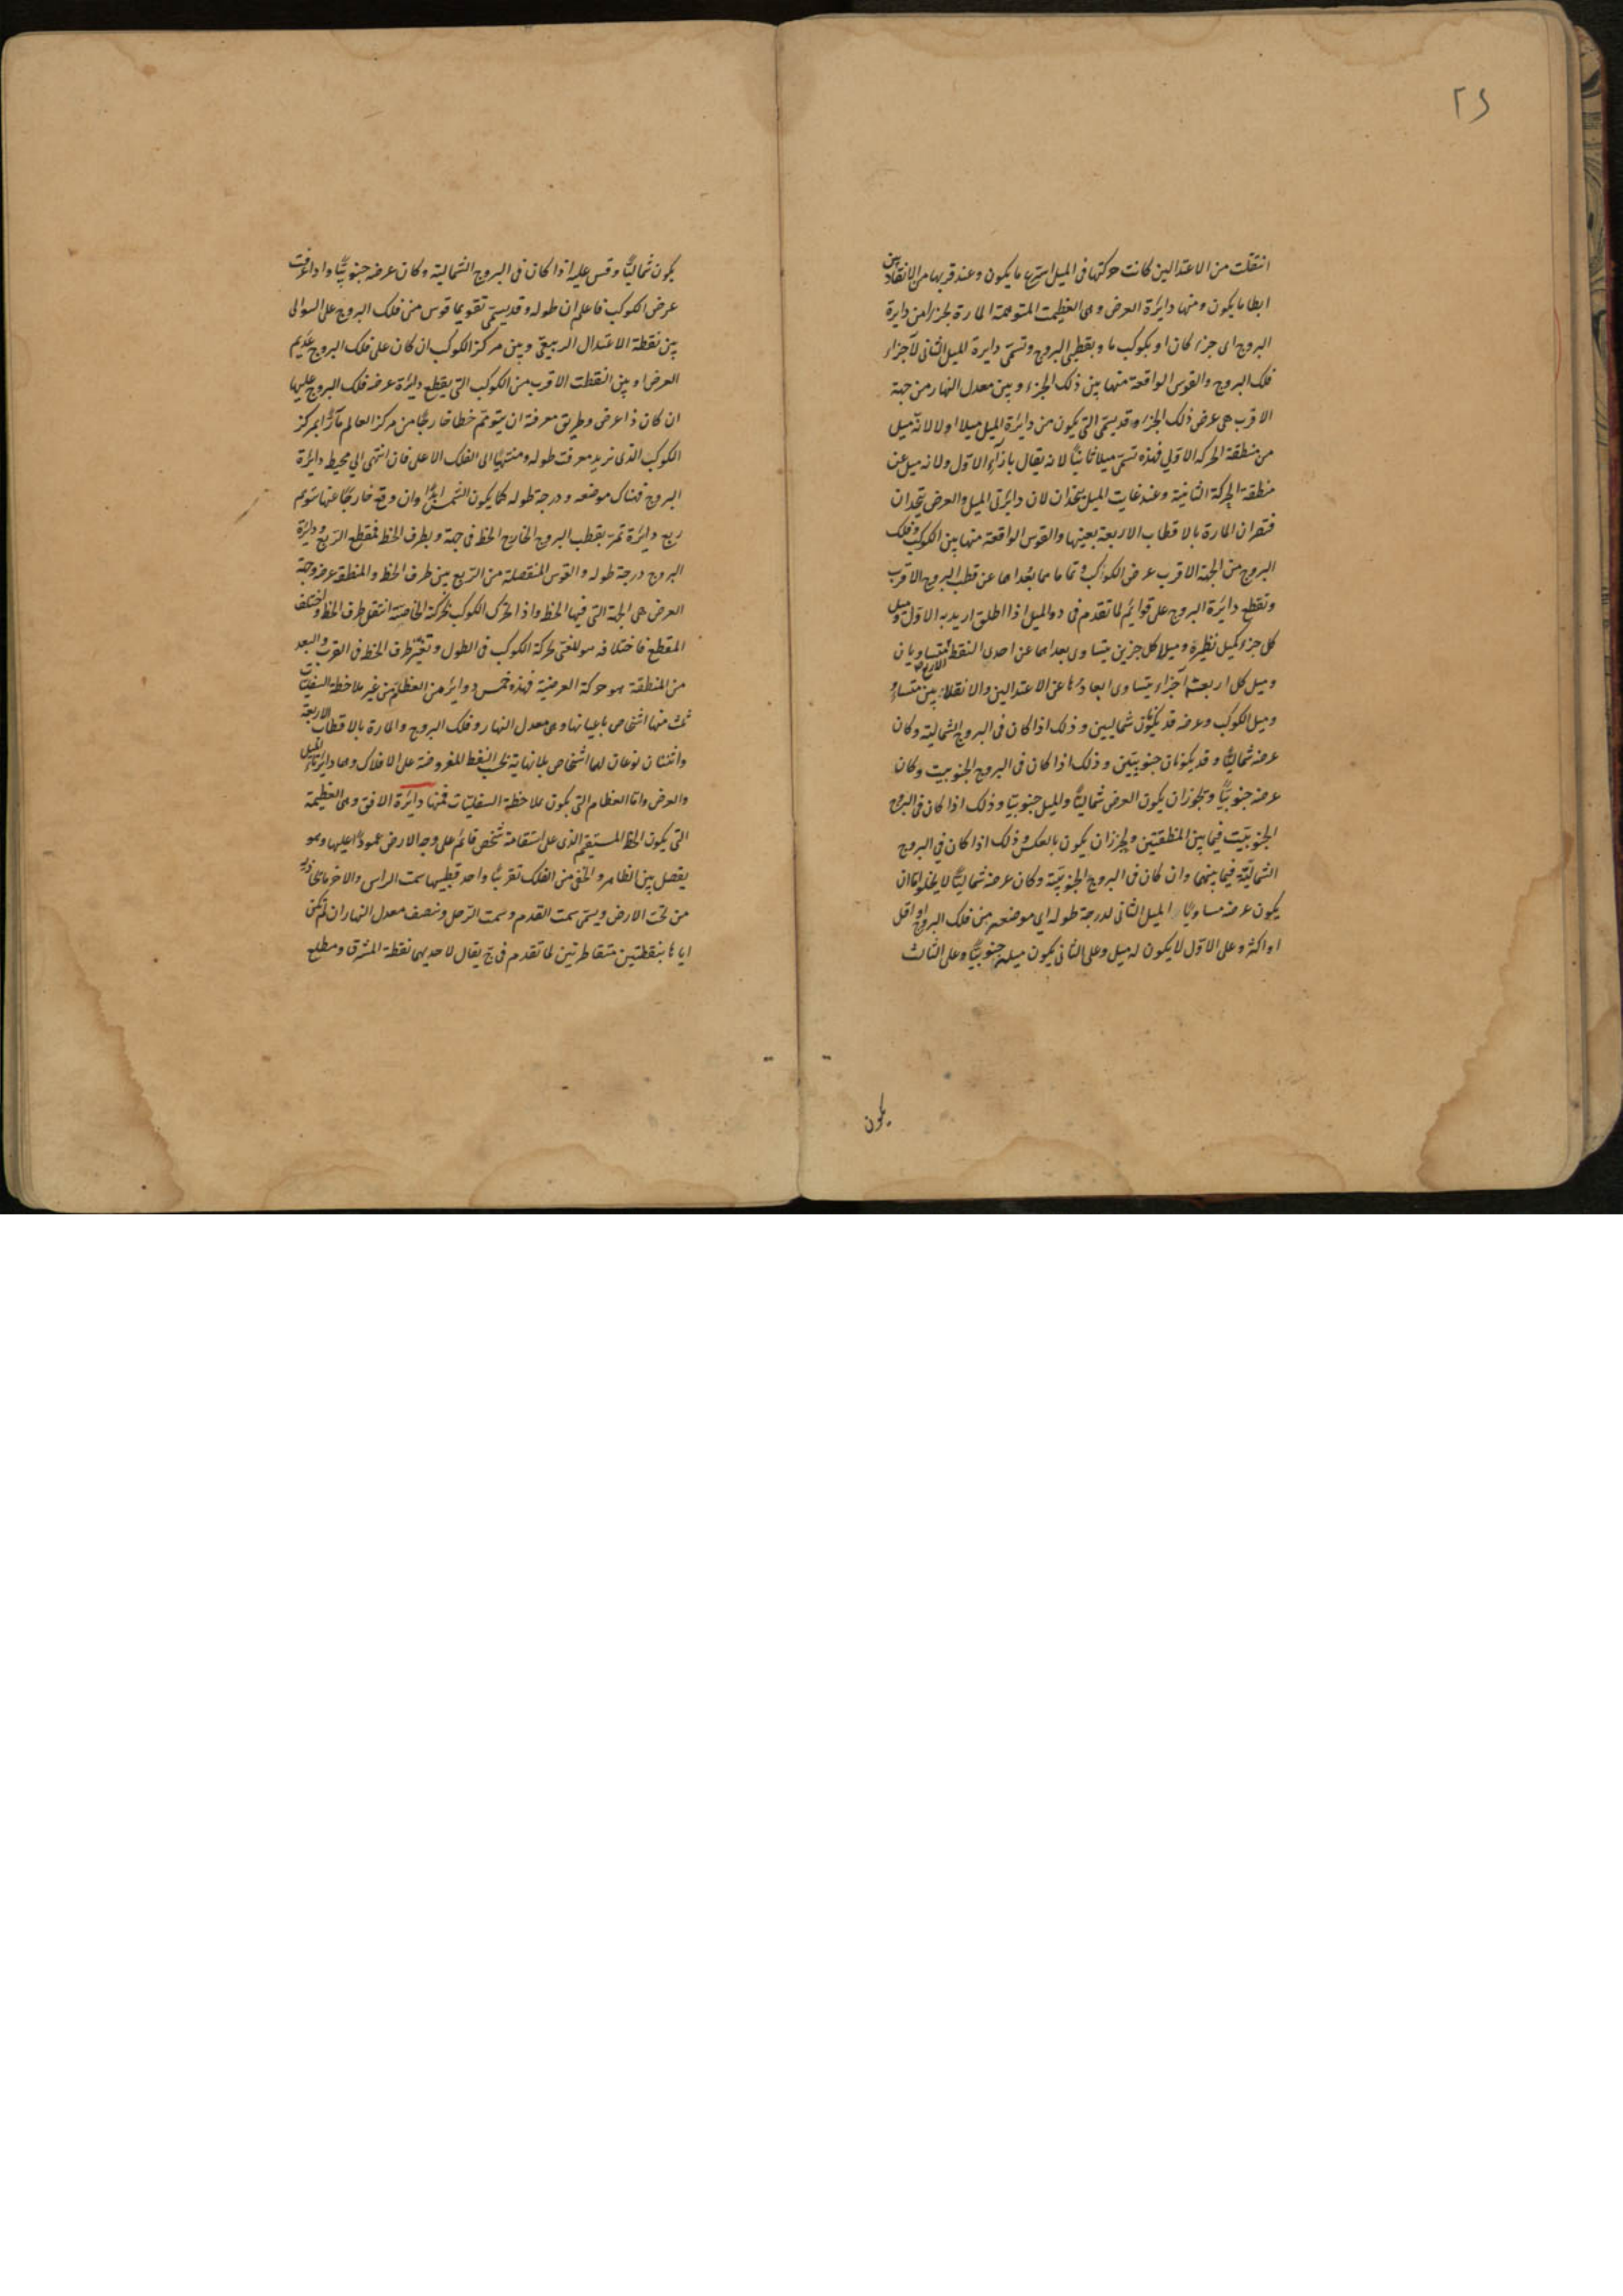 ٢٤
انتقلت من الاعتدالين كانت حركتها فى الميل اسرع ما يكون وعند قربها من الانقلابين
ابطا ما يكون ومنها دايرة العرض وهى العظيمة المتوهمة المارة بجزء من دايرة
البروج اى جزء كان او بكوكب ما وبقطبى البروج وتسمّى دايرة الميل الثانى لاجزاء
فلك البروج والقوس الواقعة منها بين ذلك الجزء وبين معدل النهار من جهة
الاقرب هى عرض ذلك الجزء وقد يسمّى التى يكون من دايرة الميل ميلا اولا لانه ميل
من منطقة الحركة الاولى فهذه تسمّى ميلا ثانيًا لانه يقال بازاء الاول ولانه ميل عن
منطقة الحركة الثانية وعند غايت الميل يتحدان لان دائرتى الميل والعرض يتحدان
فتصيران المارة بالاقطاب الاربعة بعينها والقوس الواقعة منها بين الكوكب وفلك
البروج من الجهة الاقرب عرض الكوكب وتمامها بعدها عن قطب البروج الاقرب
وتقطع دايرة البروج على قوايم لما تقدم فى د والميل اذا اطلق اريد به الاول وميل
كل جزء كميل نظيره وميلا كل جزين يتساوى بعداهما عن احدى النقط الاربع متساويان
وميل كل اربعة اجزاء يتساوى ابعادها عن الاعتدالين والانقلابين متساو
وميل الكوكب وعرضه قد يكونان شماليين وذلك اذا كان فى البروج الشمالية وكان
عرضه شماليًا وقد يكونان جنوبيّين وذلك اذا كان فى البروج الجنوبية وكان
عرضه جنوبيًّا ويجوز ان يكون العرض شماليًّا والميل جنوبيّا وذلك اذا كان فى البروج
الجنوبيّة فيما بين المنطقتين ويجوز ان يكون بالعكس وذلك اذا كان فى البروج
الشماليّة فيما بينهما وان كان فى البروج الجنوبيّة وكان عرضه شماليًّا لا يخلو اما ان
يكون عرضه مساويًا الميل الثانى لدرجة طوله اى موضعه من فلك البروج او اقل
او اكثر وعلى الاول لا يكون له ميل وعلى الثانى يكون ميله جنوبيًّا وعلى الثالث
يكون
يكون شماليًّا وقس عليه اذا كان فى البروج الشمالية وكان عرضه جنوبيًّا واذا عرفت
عرض الكوكب فاعلم ان طوله وقد يسمّى تقويما قوس من فلك البروج على التوالى
بين نقطة الاعتدال الربيعى وبين مركز الكوكب ان كان على فلك البروج عديم
العرض او بين النقطة الاقرب من الكوكب التى يقطع دايرة عرضه فلك البروج عليها
ان كان ذا عرض وطريق معرفة ان يتوهم خطا خارجًا من مركز العالم مارًّا بمركز
الكوكب الذى نريد معرفت طوله ومنتهيًا الى الفلك الاعلى فان انتهى الى محيط دايرة
البروج فهناك موضعه ودرجة طوله كما يكون الشمس ابدًا وان وقع خارجًا عنها يتوهم
ربع دايرة تمرّ بقطب البروج الخارج الخط فى جهته وبطرف الخط فمقطع الربع ودايرة
البروج درجة طوله والقوس المنفصلة من الربع بين طرف الخط والمنطقة عرضه وجهة
العرض هى الجهة التى فيها الخط واذا تحرك الكوكب بحركته الخاصيّة انتقل طرف الخط واختلف
المقطع فاختلافه هو المعنى بحركة الكوكب فى الطول وتغيّر طرف الخط فى القرب والبعد
من المنطقة هو حركة العرضية فهذه خمس دوائر من العظام من غير ملاحظة السفليات
ثلث منها اشخاص باعيانها وهى معدل النهار وفلك البروج والمارة بالاقطاب الاربعة
واثنتان نوعان لهما اشخاص بلا نهاية بحسب النقط المفروضة على الافلاك وهما دايرتا الميل
والعرض واما العظام التى يكون بملاحظة السفليّات فمنها دايرة الافق وهى العظيمة
التى يكون الخط المستقيم الذى على استقامة شخص قائم على وجه الارض عمودًا عليها وهو
يفصل بين الظاهر والخفى من الفلك تقريبًا واحد قطبيها سمت الراس والاخر يحاذيه
من تحت الارض ويسمى سمت القدم وسمت الرجل وينصف معدل النهار ان لم تكن
اياها بنقطتين متقاطرتين لما تقدم فى ج يقال لاحديهما نقطة المشرق ومطلع